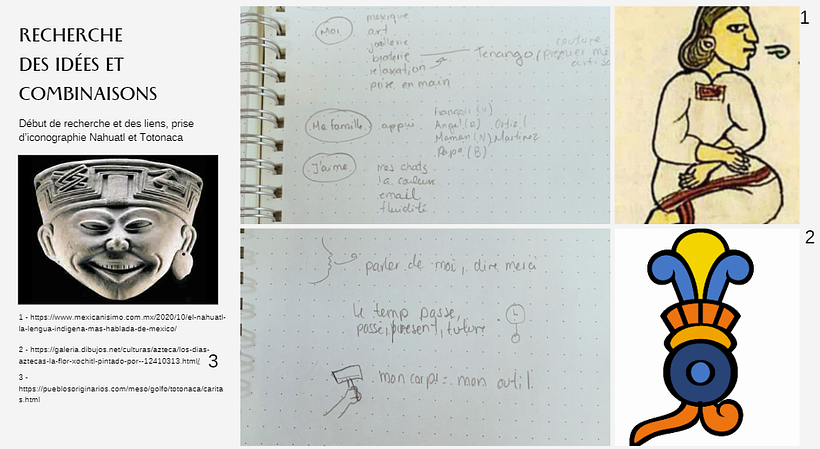 RECHERCHE
DES IDÉES ET
COMBINAISONS
Début de recherche et des liens, prise
d'iconographie Nahuatl et Totonaca
1 - https://www.mexicanisimo.com.mx/2020/10/el-nahuatl-
la-lengua-indigena-mas-hablada-de-mexico/
2 - https://galeria.dibujos.net/culturas/azteca/los-dias-
aztecas-la-flor-xochitl-pintado-por--12410313.html/
3
3 -
https://pueblosoriginarios.com/meso/golfo/totonaca/carita
s.html
Moi
mexique
art
joaillerie
broderie
relaxation
prise en main
Tenango
couture
Ma famille
appui
François (U)
Angel (R) Ortiz
Maman (N) Martinez
Papa (B)
J'aime
mes chats
la couleur
email
fluidité
1
parler de moi, dire merci
le temp passe,
passé, présent, future
mon corps = mon outil
2